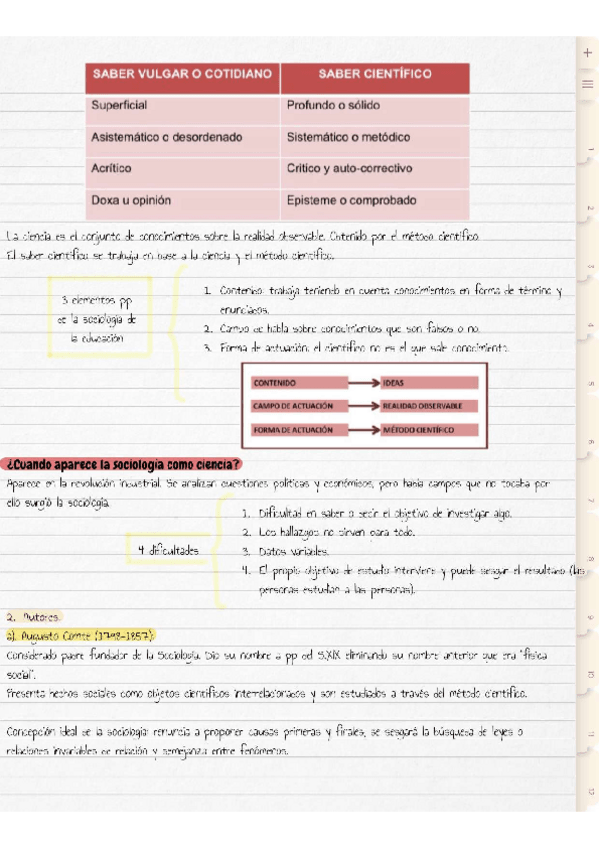 SABER VULGAR O COTIDIANO SABER CIENTÍFICO
Superficial Profundo o sólido
Asistemático o desordenado Sistemático o metódico
Acrítico Critico y auto-correctivo
Doxa u opinión Episteme o comprobado
La ciencia es el conjunto de conocimientos sobre la realidad observable. Obtenido por el método científico.
El saber científico se trabaja en base a la ciencia y el método científico.
3 elementos pp
de la sociología de
la educación
1. Contenido: trabaja teniendo en cuenta conocimientos en forma de término y
enunciados.
2. Campo de habla sobre conocimientos que son falsos o no.
3. Forma de actuación: el científico no es el que sale conocimiento.
CONTENIDO IDEAS
CAMPO DE ACTUACIÓN REALIDAD OBSERVABLE
FORMA DE ACTUACIÓN MÉTODO CIENTÍFICO
¿Cuando aparece la sociología como ciencia?
Aparece en la revolución industrial. Se analizan cuestiones políticas y económicos, pero había campos que no tocaba por
ello surgió la sociología.
4 dificultades
1. Dificultad en saber o decir el objetivo de investigar algo.
2. Los hallazgos no sirven para todo.
3. Datos variables.
4. El propio objetivo de estudio interviene y puede sesgar el resultado (las
personas estudian a las personas).
2. Autores.
a). Augusto Comte (1798-1857):
Considerado padre fundador de la Sociología. Dio su nombre a pp del S.XIX eliminando su nombre anterior que era "física
social".
Presenta hechos sociales como objetos científicos interrelacionados y son estudiados a través del método científico.
Concepción ideal de la sociología: renuncia a proponer causas primeras y finales, se sesgará la búsqueda de leyes o
relaciones invariables de relación y semejanza entre fenómenos.
1
2
3
4
5
6
7
8
9
10
11
12